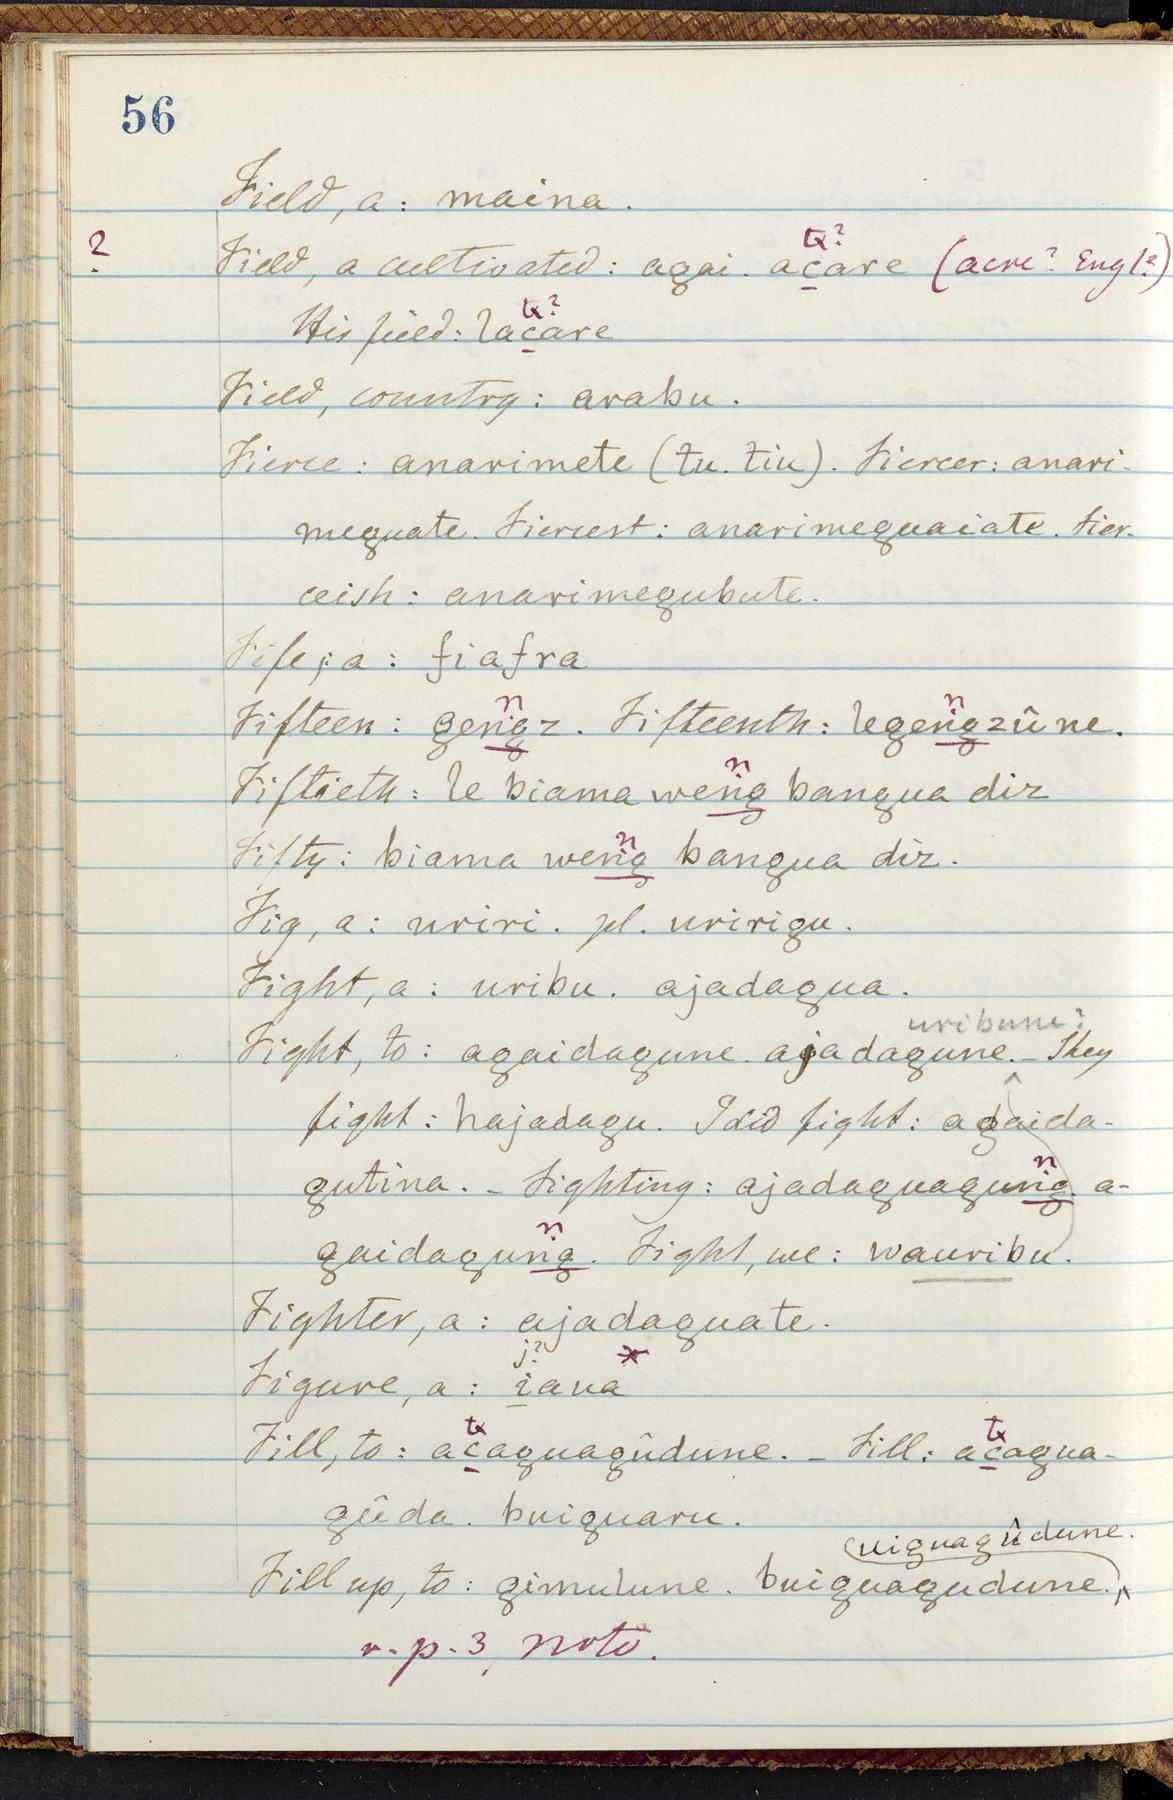 56
Field, a: maina.
tx?
? Field, a cultivated: agai. acare (acre? Engl?)
tx?
His field: lacare
Field, country: arabu.
Fierce: anarimete (tu. tiu). Fiercer: anari-
meguate. Fiercest: anarimeguaiate. Fier-
ceish: anarimegubute.
Fife, a: fiafra
n n
Fifteen: geṅgz. Fifteenth: legeṅgzûne.
n
Fiftieth: le biama weṅg bangua diz
n
Fifty: biama weṅg bangua diz.
Fig, a: uriri. pl. uririgu.
Fight, a: uribu. ajadagua.
uribune?
Fight, to: agaidagune. ajadagune. – They
fight: hajadagu. I did fight: agaida-
n
gutina. – Fighting: ajadaguaguṅg. a-
n
gaidaguṅg. Fight, we: wauribu.
Fighter, a: ajadaguate.
j? *
Figure, a: iaua
tx tx
Fill, to: acaguagûdune. – Fill: acagua-
gûda. buiguaru.
(uiguagûdune.
Fill up, to: gimulune. buiguagudune.
v. p. 3, note.